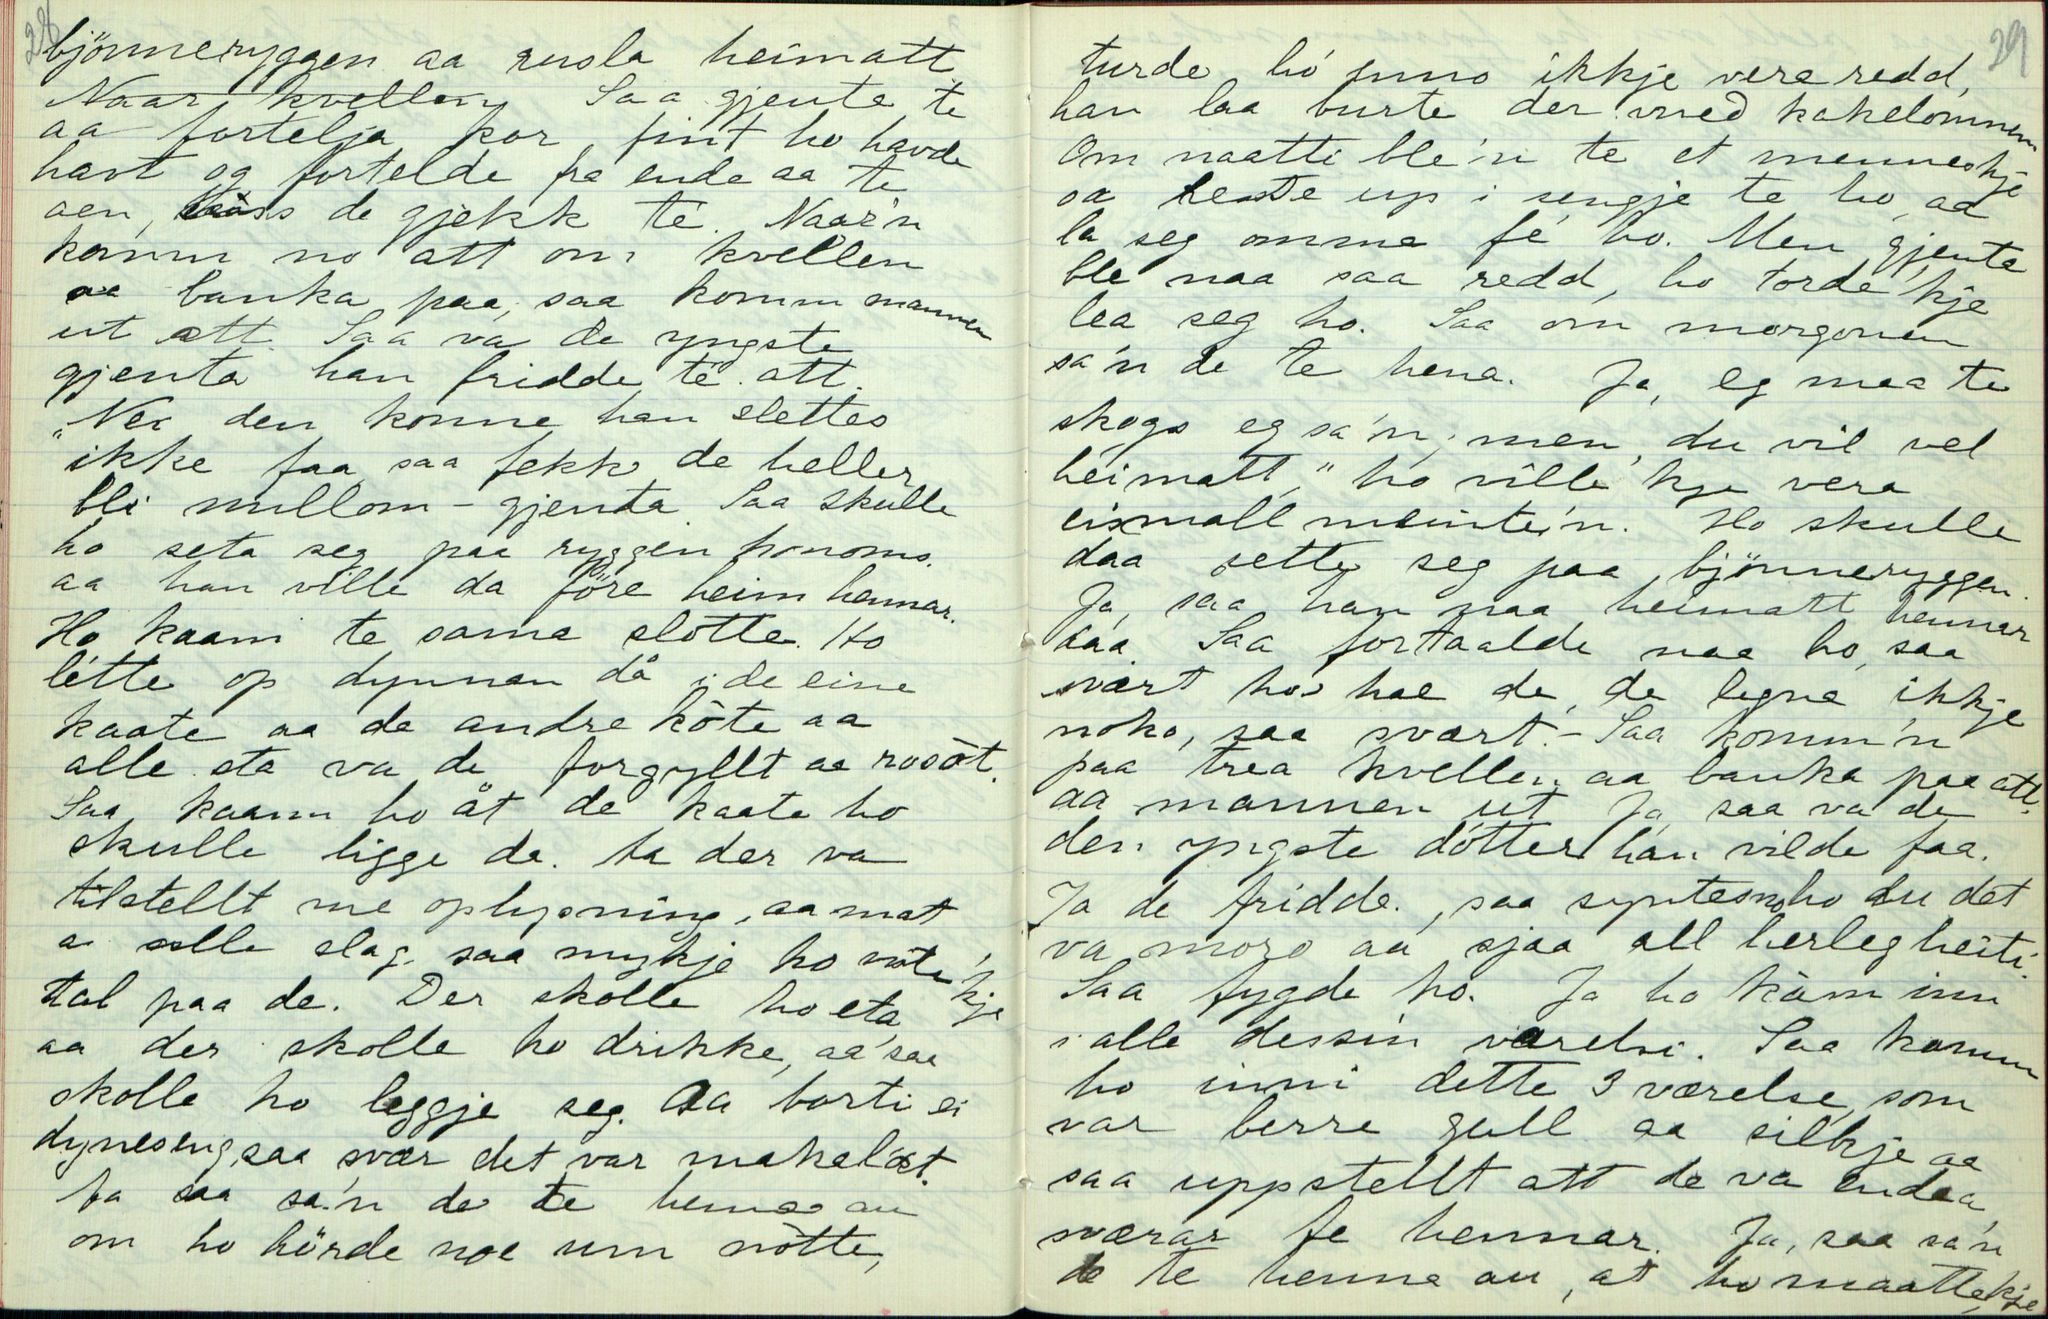 28
bjönneryggen aa rusla heimatt
Naar kvellen, Saa gjenta te
aa fortelja kor fint ho havde
havt og fortelde fra ende aa te
aen, de gjekk te. Naar'n
komm no att om kvellen
aa banka paa, saa komm mannen
ut att. Saa va de yngste
gjenta han fridde te att.
"Nei den konne han slettes
ikke faa saa fekk de heller
bli millom-gjenta Saa skulle
ho seta seg paa ryggen honoms.
aa han ville da före heim hennar.
Ho kaam te sama slotte. Ho
létte op dynnan då i de eine
kaate aa de andre kôte aa
alle sta va de forgyllt aa rosôt.
Saa kaam ho åt de kaate ho
skulle ligge de. Ja der va
tilstellt me oplysning, aa mat
a alle slag saa mykje ho visste 'kje
tal paa de. Der skolle ho eta
aa der skolle ho drikke, aa saa
skolle ho leggje seg. Aa borti ei
dyneseng, saa svær det var makelöst.
Ja saa sa'n de te henne au
om ho hörde noe um nötte,
29
turde hó enno ikkje vera redd,
han laa burte der ved kakelommen
Om naatti ble'n te et menneskje
aa reste up i sengje te ho aa
la seg omme fé ho. Men gjenta
ble naa saa redd, ho torde 'kje
léa seg ho. Saa om morgonen
sa'n de te hena. Ja, eg maa te
skogs eg sa'n, men du vil vel
heimatt," ho ville 'kje vera
eismall meinte'n. Ho skulle
daa sette seg paa bjönneryggen.
Ja, saa han naa heimatt hennar
daa. Saa fortaalde naa ho, saa
svært ho hae de, de legna ikkje
noko, saa svært. - Saa komm'n
paa trea kvellen aa banka paa att.
aa mannen ut Ja saa va de
den yngste dótter han vilde faa.
Ja de fridde, saa syntes ho au det
va moro aa sjaa all herlegheiti.
Saa fygde ho. Ja ho kàm inn
i alle dessin værelsi. Saa komm
ho inni dette 3 værelse, som
var berre gull aa silkje aa
saa uppstellt att de va endaa
sværar fe hennar. Ja, saa sa'n
de te henne au, at ho maatte 'kje